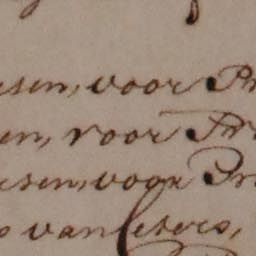 esen, voor Pr
en, voor Pr
esen, voor Pr
van Cesers,